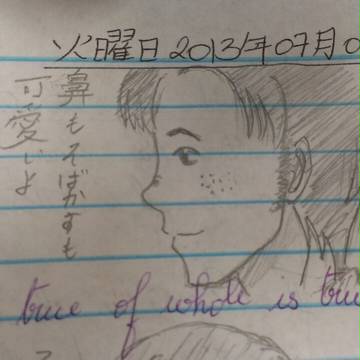 火曜日2013年07月0
鼻もそばかすも
可愛いよ
true of whole is tru